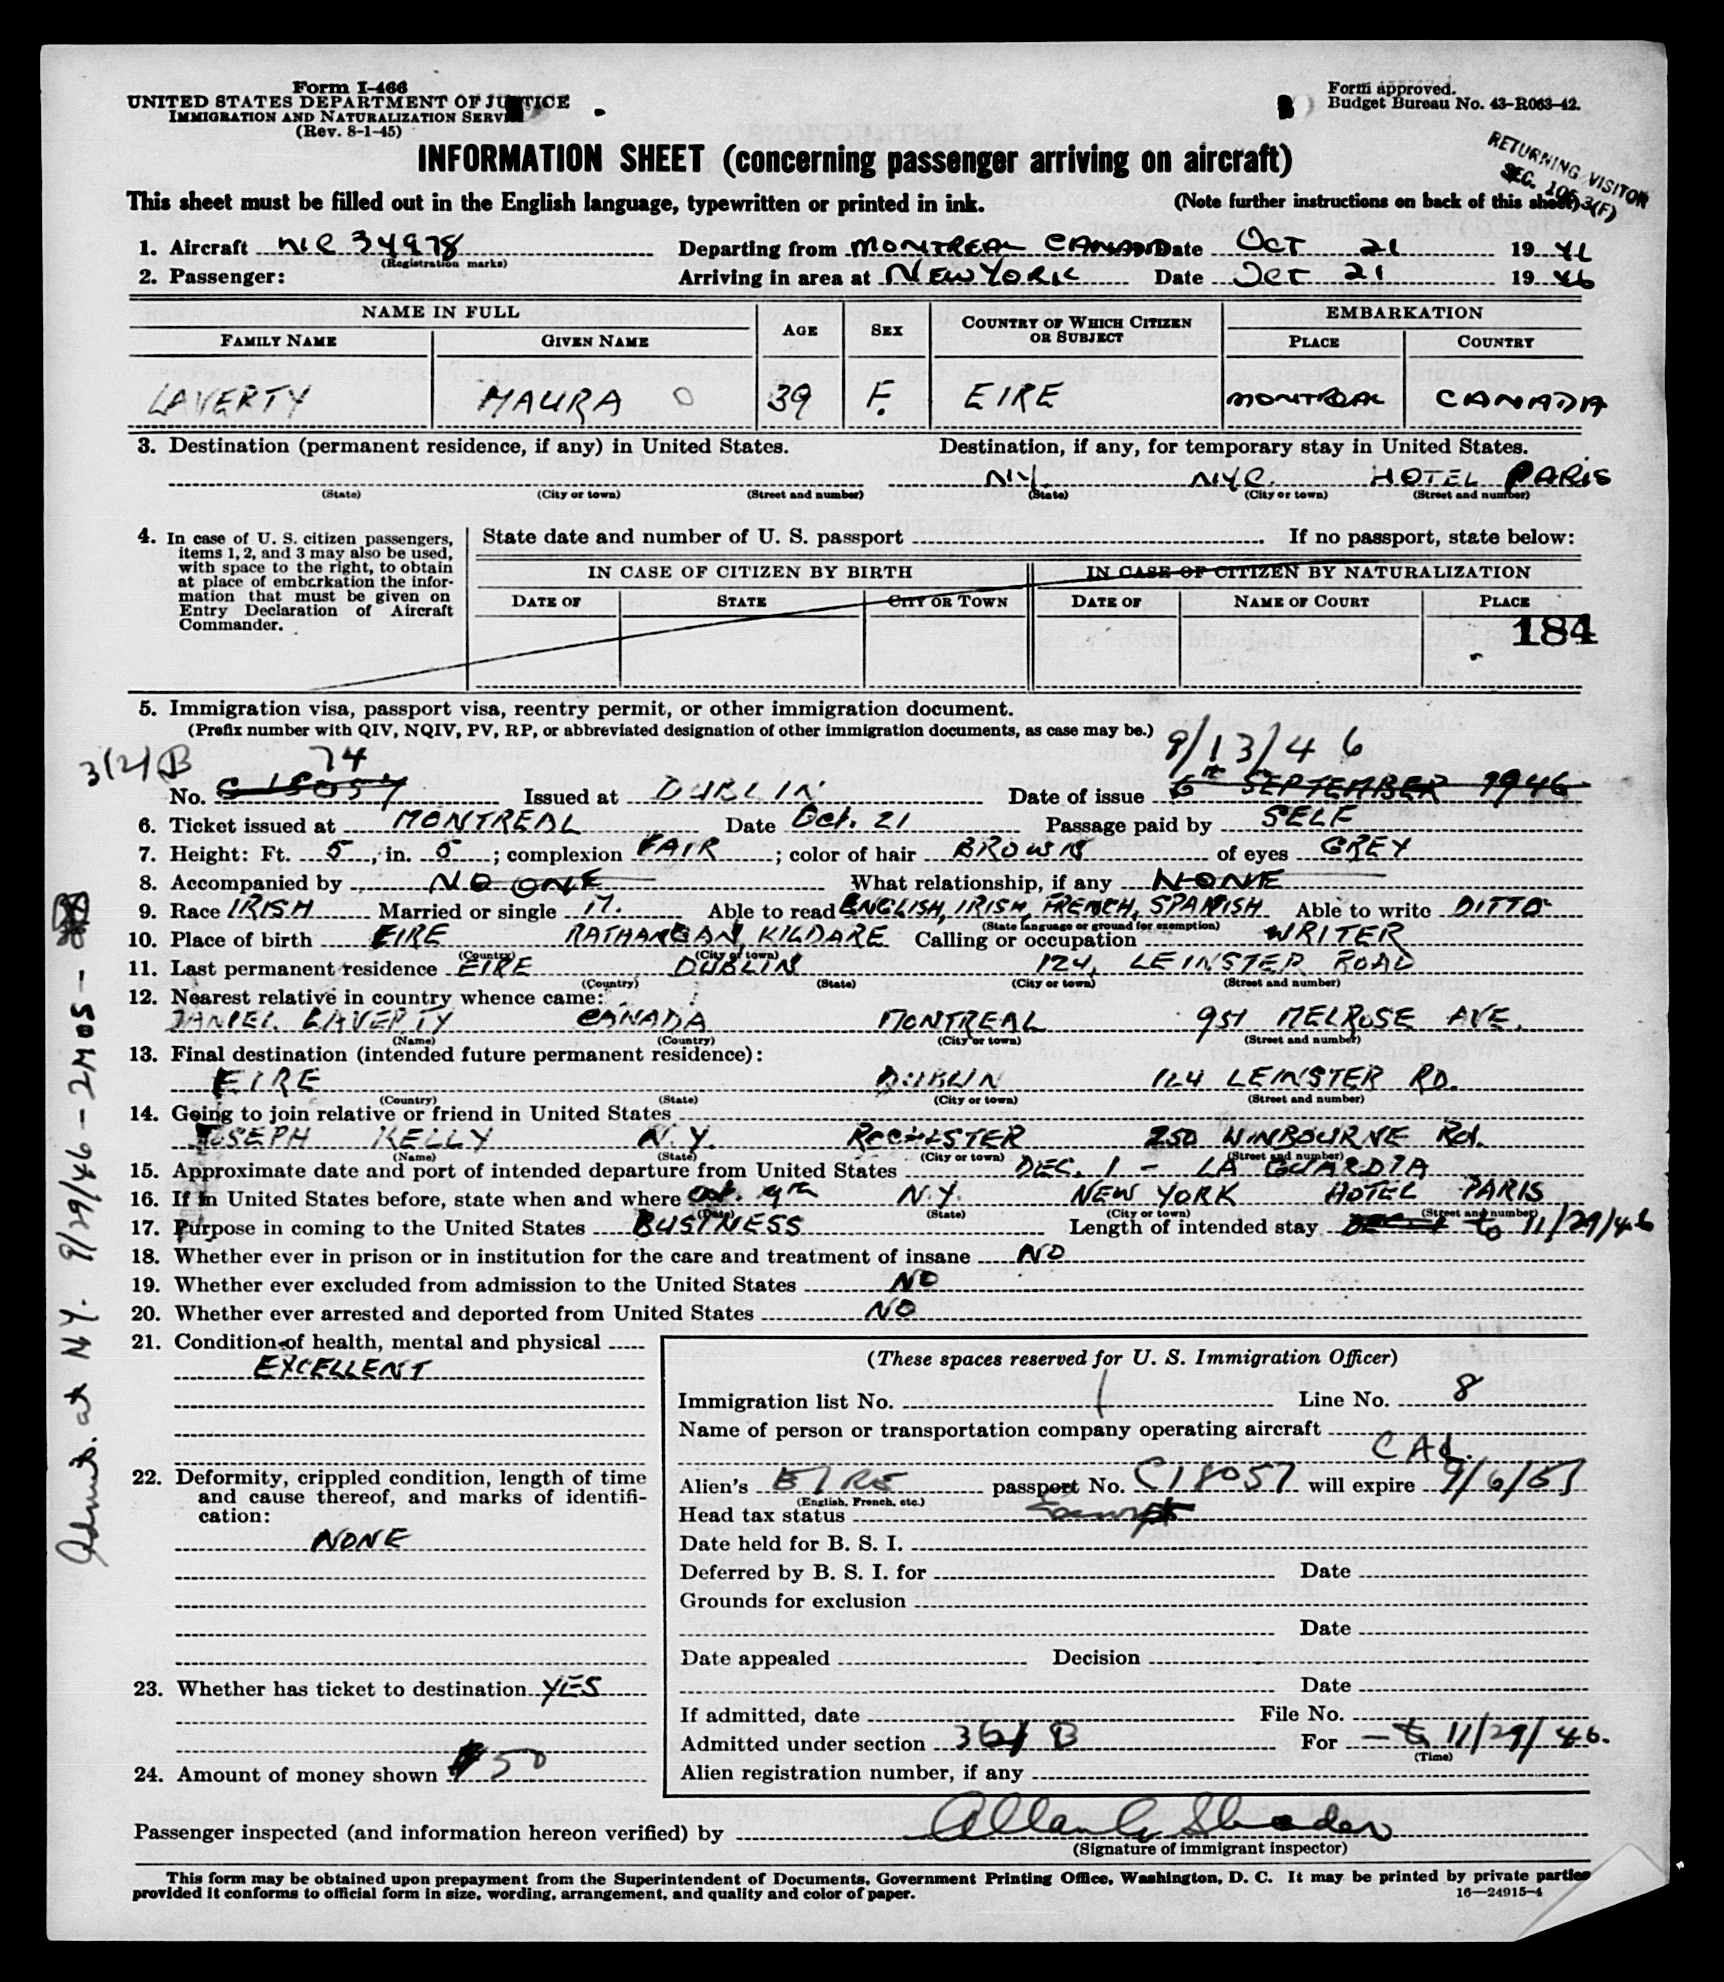 Form I-466
UNITED STATES DEPARTMENT OF JUSTICE
IMMIGRATION AND NATURALIZATION SERVICE
(Rev. 8-1-45)
Form approved.
Budget Bureau No. 43-R063-42.
RETURNING VISITOR
SEC. 3(F)
INFORMATION SHEET (concerning passenger arriving on aircraft)
This sheet must be filled out in the English language, typewritten or printed in ink. (Note further instructions on back of this sheet)
1. Aircraft NC 34978 Departing from MONTREAL CANADA Date OCT 21 1946
(Registration marks)
2. Passenger: Arriving in area at NEW YORK Date OCT 21 1946
NAME IN FULL AGE SEX COUNTRY OF WHICH CITIZEN OR SUBJECT EMBARKATION
FAMILY NAME GIVEN NAME PLACE COUNTRY
LAVERTY MAURA O 39 F. EIRE MONTREAL CANADA
3. Destination (permanent residence, if any) in United States. Destination, if any, for temporary stay in United States.
N.Y. NYC. HOTEL PARIS
(State) (City or town) (Street and number) (State) (City or town) (Street and number)
4. In case of U. S. citizen passengers, items 1, 2, and 3 may also be used, with space to the right, to obtain at place of embarkation the information that must be given on Entry Declaration of Aircraft Commander.
State date and number of U. S. passport If no passport, state below:
IN CASE OF CITIZEN BY BIRTH IN CASE OF CITIZEN BY NATURALIZATION
DATE OF STATE CITY OR TOWN DATE OF NAME OF COURT PLACE
184
5. Immigration visa, passport visa, reentry permit, or other immigration document.
(Prefix number with QIV, NQIV, PV, RP, or abbreviated designation of other immigration documents, as case may be.)
3(2)B 74 9/13/46
No. C 18057 Issued at DUBLIN Date of issue 6th SEPTEMBER 1946
6. Ticket issued at MONTREAL Date Oct. 21 Passage paid by SELF
7. Height: Ft. 5, in. 5; complexion FAIR; color of hair BROWN of eyes GREY
8. Accompanied by NO ONE What relationship, if any NONE
9. Race IRISH Married or single M. Able to read ENGLISH, IRISH, FRENCH, SPANISH Able to write DITTO
(State language or ground for exemption)
10. Place of birth EIRE RATHANGAN, KILDARE Calling or occupation WRITER
(Country) (City or town)
11. Last permanent residence EIRE DUBLIN 124, LEINSTER ROAD
(Country) (State) (City or town) (Street and number)
12. Nearest relative in country whence came:
DANIEL LAVERTY CANADA MONTREAL 951 MELROSE AVE.
(Name) (Country) (City or town) (Street and number)
13. Final destination (intended future permanent residence):
EIRE DUBLIN 124 LEINSTER RD.
(Country) (State) (City or town) (Street and number)
14. Going to join relative or friend in United States
JOSEPH KELLY N.Y. ROCHESTER 250 WINBOURNE Rd.
(Name) (State) (City or town) (Street and number)
15. Approximate date and port of intended departure from United States DEC. 1 - LA GUARDIA
16. If in United States before, state when and where Oct. 9th N.Y. NEW YORK HOTEL PARIS
(Date) (State) (City or town) (Street and number)
17. Purpose in coming to the United States BUSINESS Length of intended stay to 11/29/46
18. Whether ever in prison or in institution for the care and treatment of insane NO
19. Whether ever excluded from admission to the United States NO
20. Whether ever arrested and deported from United States NO
21. Condition of health, mental and physical
EXCELLENT
22. Deformity, crippled condition, length of time and cause thereof, and marks of identification:
NONE
23. Whether has ticket to destination YES
24. Amount of money shown $50
(These spaces reserved for U. S. Immigration Officer)
Immigration list No. 1 Line No. 8
Name of person or transportation company operating aircraft
CAL.
Alien's EIRE passport No. C18057 will expire 9/6/51
(English, French, etc.)
Head tax status Exempt
Date held for B. S. I.
Deferred by B. S. I. for Date
Grounds for exclusion
Date
Date appealed Decision
Date
If admitted, date File No.
Admitted under section B For - to 11/29/46.
(Time)
Alien registration number, if any
Passenger inspected (and information hereon verified) by
(Signature of immigrant inspector)
This form may be obtained upon prepayment from the Superintendent of Documents, Government Printing Office, Washington, D. C. It may be printed by private parties
provided it conforms to official form in size, wording, arrangement, and quality and color of paper. 16—24915-4
Admit. at N.Y. 9/29/46 - 2 MOS -